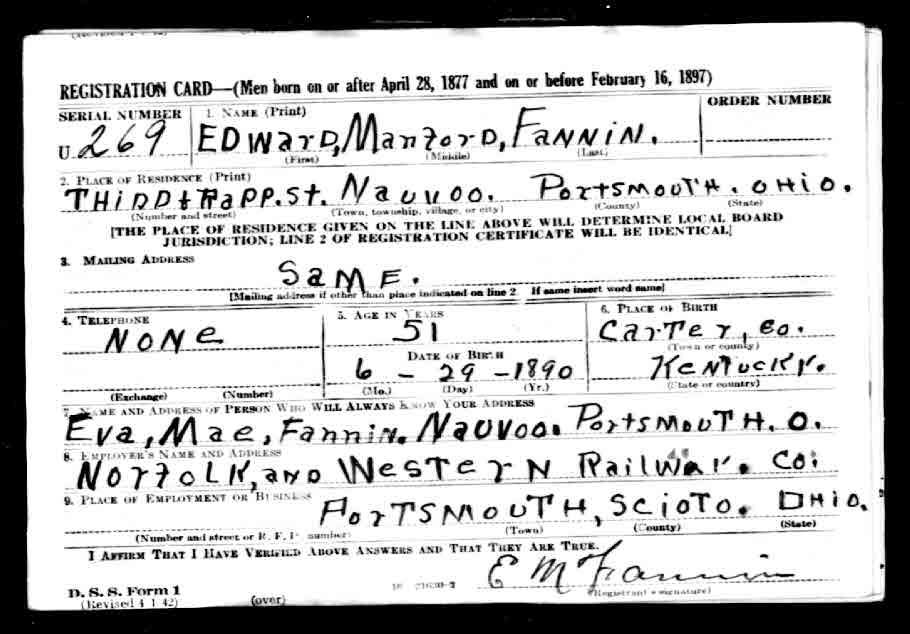 REGISTRATION CARD—(Men born on or after April 28, 1877 and on or before February 16, 1897)
SERIAL NUMBER 1. NAME (Print) ORDER NUMBER
U 269 EDWarD, ManforD, FanniN.
(First) (Middle) (Last)
2. PLACE OF RESIDENCE (Print)
THIRD & TRaPP. St. Nauvoo. PortsmouTH. OHIO.
(Number and street) (Town, township, village, or city) (County) (State)
[THE PLACE OF RESIDENCE GIVEN ON THE LINE ABOVE WILL DETERMINE LOCAL BOARD
JURISDICTION; LINE 2 OF REGISTRATION CERTIFICATE WILL BE IDENTICAL]
3. MAILING ADDRESS
SaME.
[Mailing address if other than place indicated on line 2 If same insert word same]
4. TELEPHONE 5. AGE IN YEARS 6. PLACE OF BIRTH
NoNe 51 CarTer, Co.
(Town or county)
DATE OF BIRTH
6 - 29 - 1890 KeNTucKY.
(Exchange) (Number) (Mo.) (Day) (Yr.) (State or country)
7. NAME AND ADDRESS OF PERSON WHO WILL ALWAYS KNOW YOUR ADDRESS
Eva, Mae, Fannin. Nauvoo. PortsmouTH. O.
8. EMPLOYER'S NAME AND ADDRESS
NorfoLK, aND WesTerN RaiLWaY. Co.
9. PLACE OF EMPLOYMENT OR BUSINESS
PorTSMOUTH, SCIOTO. OHIO.
(Number and street or R. F. D. number) (Town) (County) (State)
I AFFIRM THAT I HAVE VERIFIED ABOVE ANSWERS AND THAT THEY ARE TRUE.
E M Fannin
D. S. S. Form 1
(Revised 4-1-42) (over) (Registrant's signature)